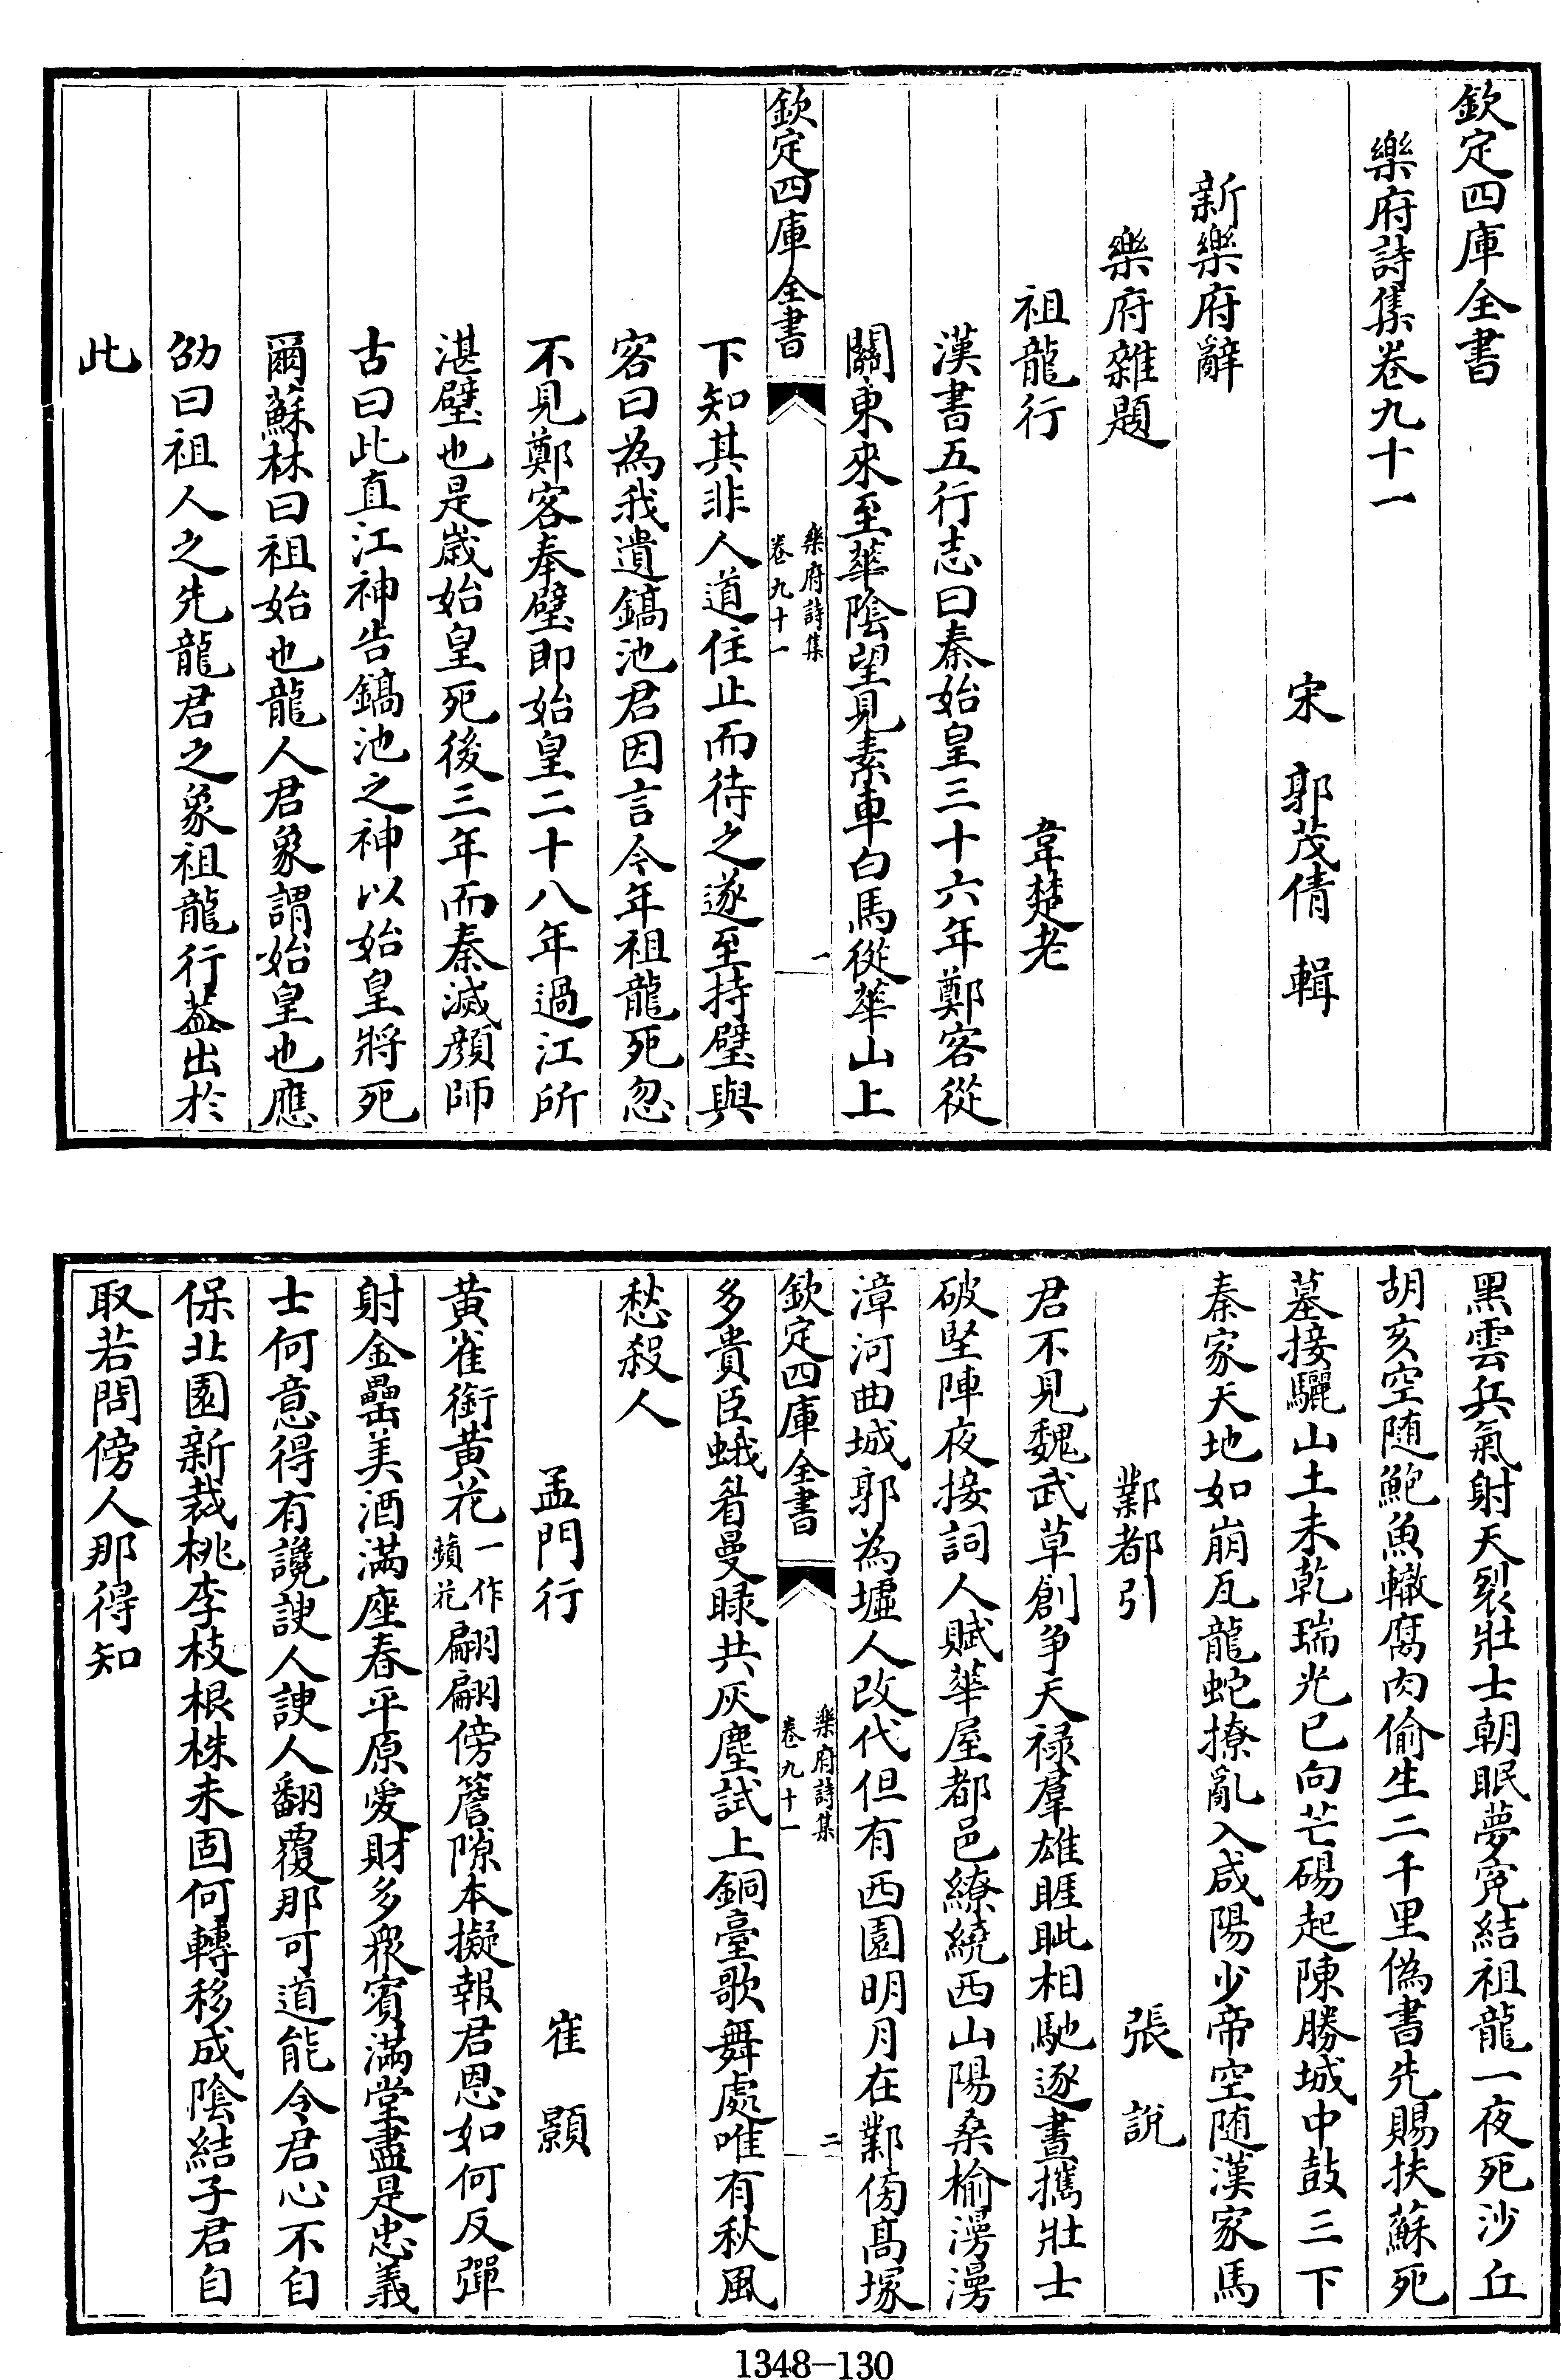 欽定四庫全書
樂府詩集卷九十一
宋　郭茂倩　輯
新樂府辭
樂府雜題
祖龍行　韋楚老
漢書五行志曰秦始皇三十六年鄭客從
關東來至華陰望見素車白馬從華山上
欽定四庫全書
樂府詩集
卷九十一
一
下知其非人道住止而待之遂至持璧與
客曰為我遺鎬池君因言今年祖龍死忽
不見鄭客奉璧即始皇二十八年過江所
湛璧也是歲始皇死後三年而秦滅顔師
古曰此直江神告鎬池之神以始皇將死
爾蘇林曰祖始也龍人君象謂始皇也應
劭曰祖人之先龍君之象祖龍行葢出於
此
黑雲兵氣射天裂壯士朝眠夢寃結祖龍一夜死沙丘
胡亥空随鮑魚轍腐肉偷生二千里偽書先賜扶蘇死
墓接驪山土未乾瑞光已向芒碭起陳勝城中鼓三下
秦家天地如崩瓦龍蛇撩亂入咸陽少帝空随漢家馬
鄴都引　張說
君不見魏武草創争天禄羣雄睚眦相馳逐晝攜壯士
破堅陣夜接詞人賦華屋都邑繚繞西山陽桑榆漫漫
漳河曲城郭為墟人改代但有西園明月在鄴傍髙塚
欽定四庫全書
樂府詩集
卷九十一
二
多貴臣蛾眉曼睩共灰塵試上銅臺歌舞處唯有秋風
愁殺人
孟門行　崔顥
黄雀銜黄花一作蘋花翩翩傍簷隙本擬報君恩如何反彈
射金罍美酒滿座春平原愛財多衆賓滿堂盡是忠義
士何意得有讒諛人諛人翻覆那可道能令君心不自
保北園新裁桃李枝根株未固何轉移成陰結子君自
取若問傍人那得知
1348-130